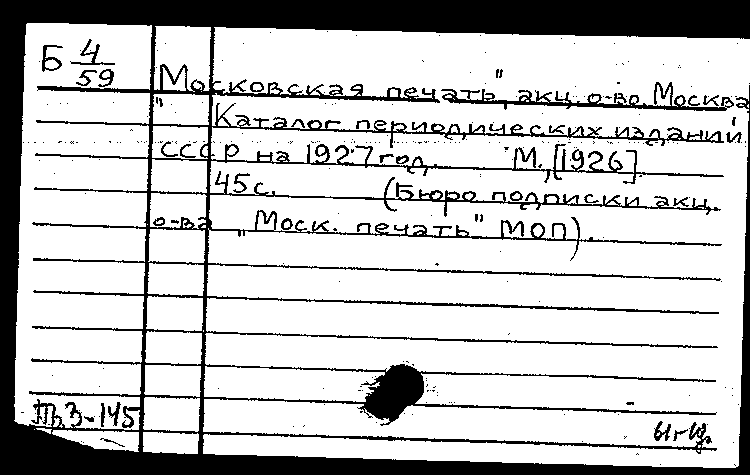 Б 4/59
Московская печать", акц. о-во. Москва
" Каталог периодических изданий
СССР на 1927 год. М., [1926]
45 с. (Бюро подписки акц.
о-ва „Моск. печать" МОП).
Пр.З-145